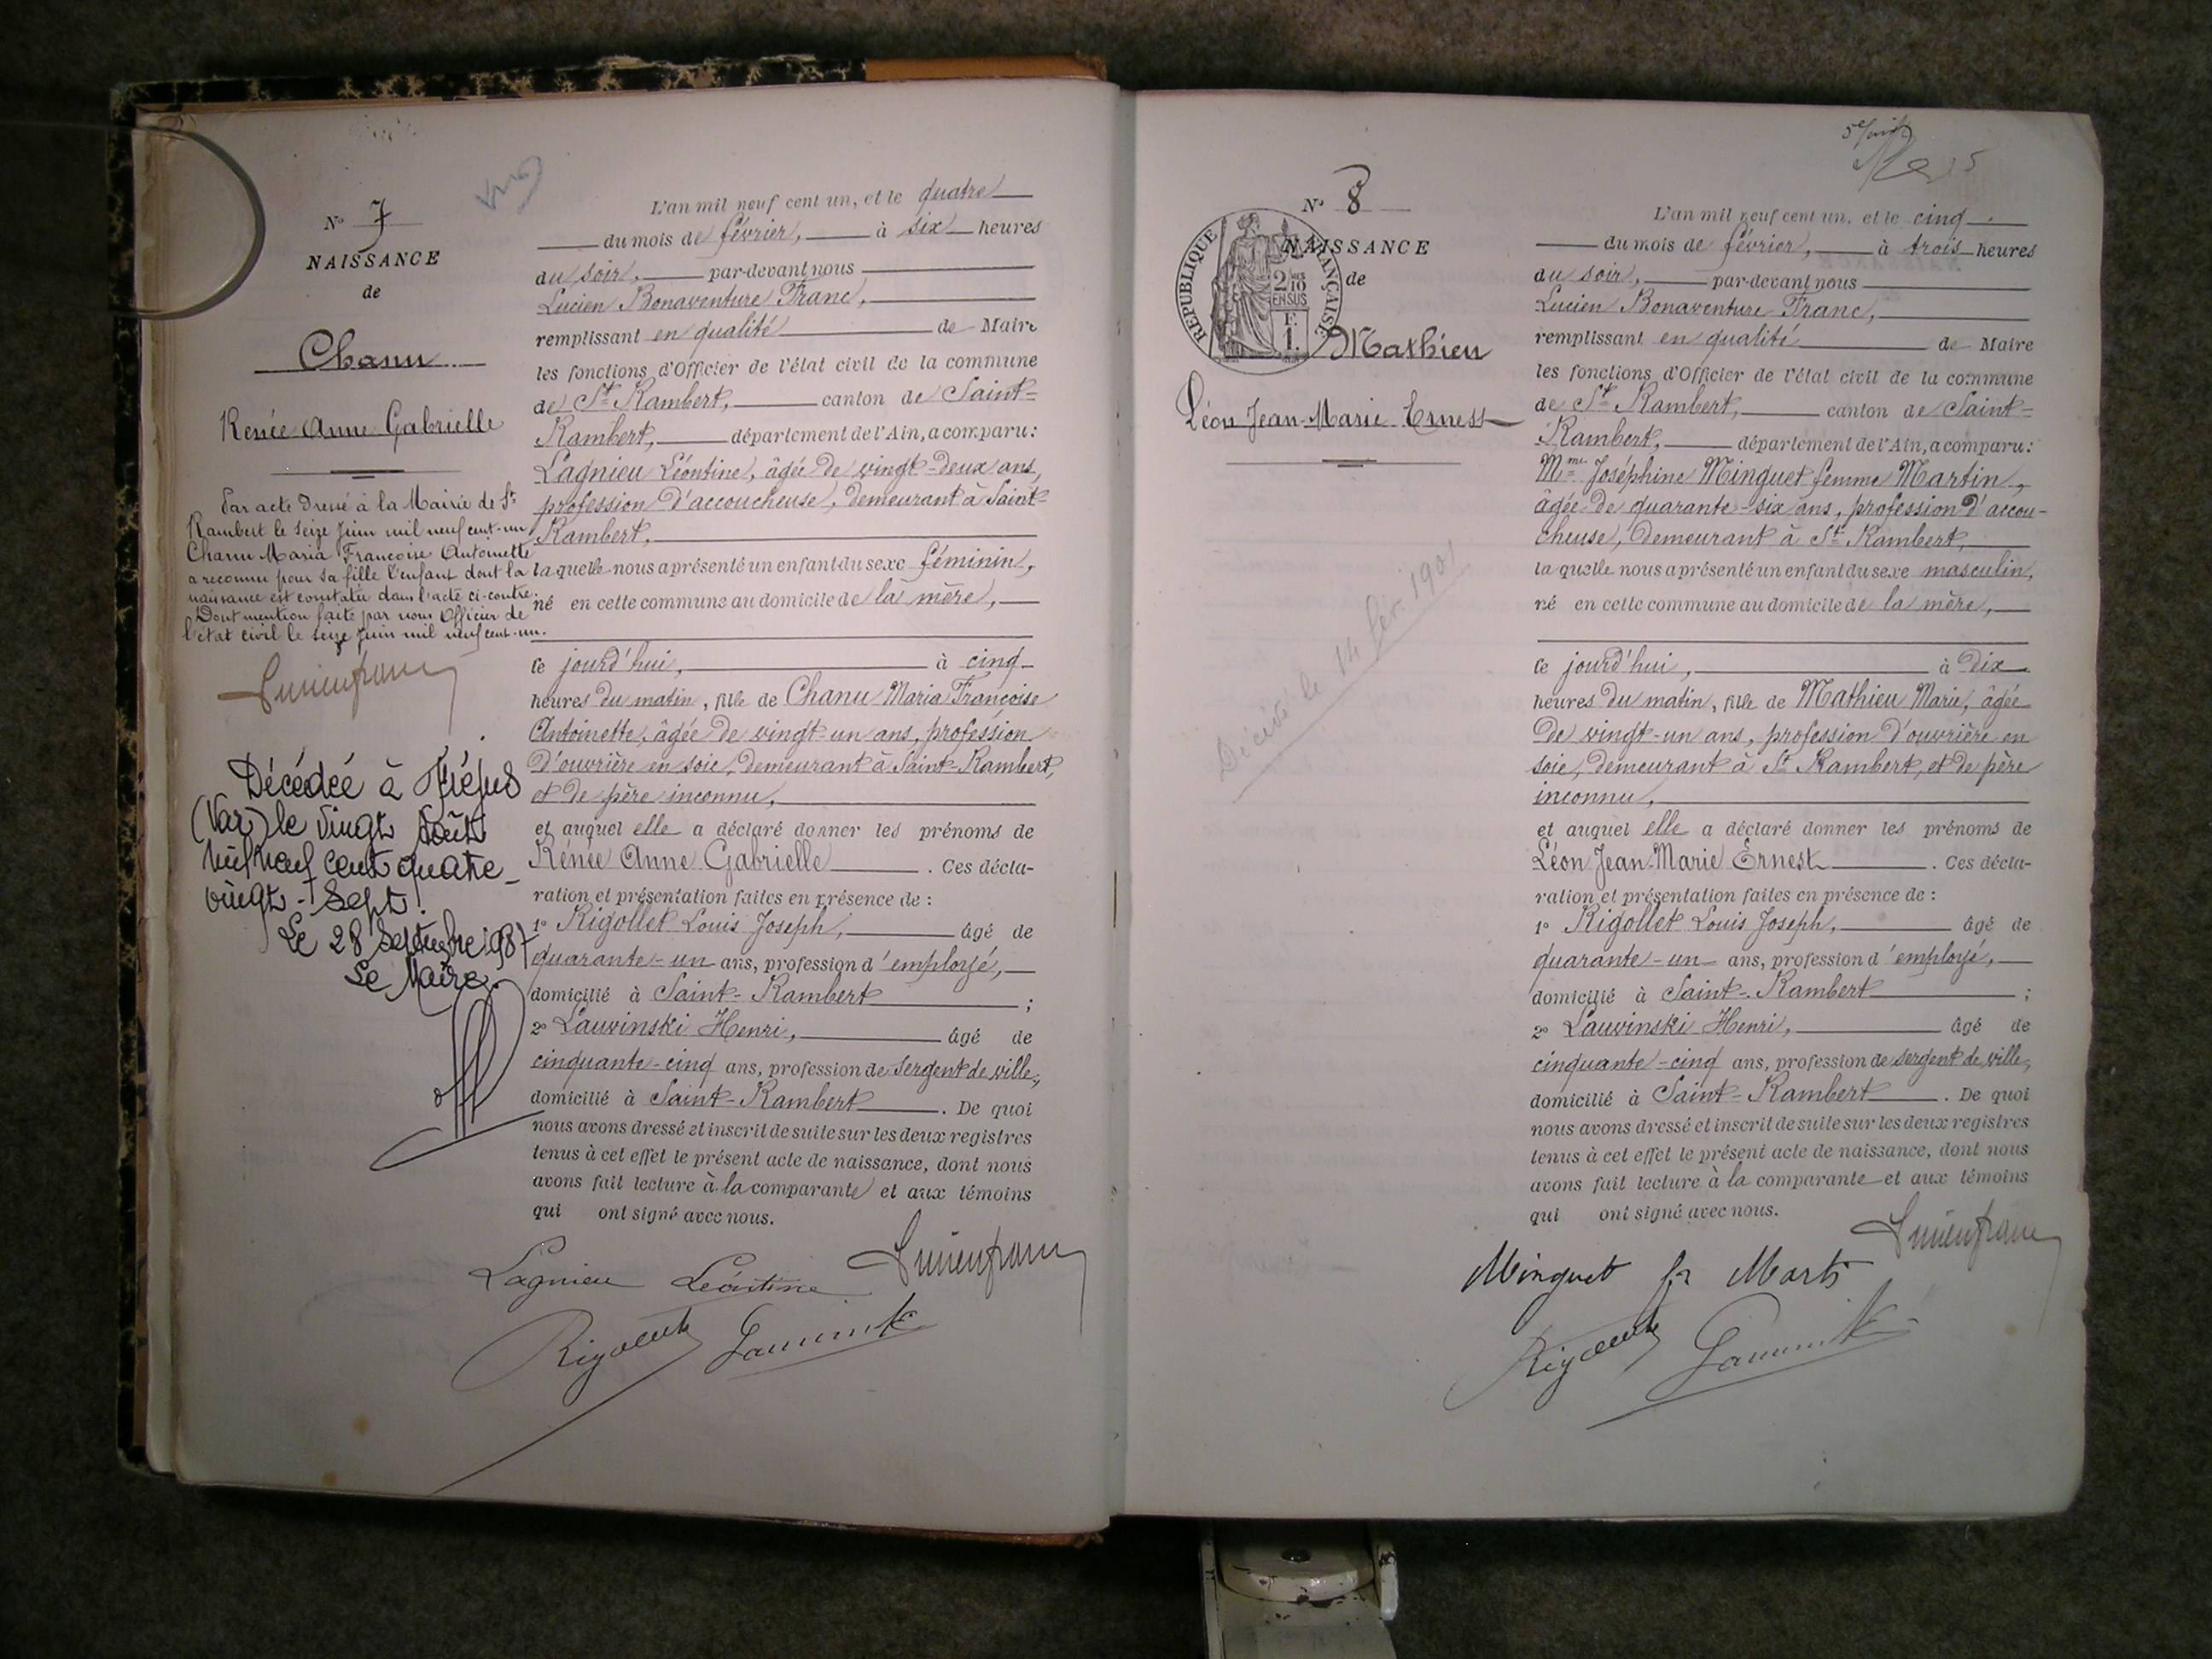 N° 7
NAISSANCE
de
Chanu
Renée Anne Gabrielle
Par acte dressé à la Mairie de St
Rambert le seize juin mil neuf cent-un
Chanu Maria Françoise Antoinette
a reconnu pour sa fille l'enfant dont la
naissance est constatée dans l'acte ci-contre.
Dont mention faite par nous Officier de
l'état civil le seize juin mil neuf cent-un.
Lucien franc
Décédée à Fréjus
(Var) le vingt Août
mil neuf cent quatre-
vingt-sept.
Le 28 Septembre 1987
Le Maire.
L'an mil neuf cent un, et le quatre
du mois de février, à six heures
du soir, par-devant nous
Lucien Bonaventure Franc,
remplissant en qualité de Maire
les fonctions d'Officier de l'état civil de la commune
de St Rambert, canton de Saint-
Rambert, département de l'Ain, a comparu:
Lagnieu Léontine, âgée de vingt-deux ans,
profession d'accoucheuse, demeurant à Saint-
Rambert,
laquelle nous a présenté un enfant du sexe féminin,
né en cette commune au domicile de la mère,
ce jourd'hui, à cinq
heures du matin, fille de Chanu Maria Françoise
Antoinette, âgée de vingt-un ans, profession
d'ouvrière en soie, demeurant à Saint-Rambert,
et de père inconnu,
et auquel elle a déclaré donner les prénoms de
Rénée Anne Gabrielle. Ces décla-
ration et présentation faites en présence de:
1° Rigollet Louis Joseph, âgé de
quarante-un ans, profession d'employé,
domicilié à Saint-Rambert;
2° Lauvinski Henri, âgé de
cinquante-cinq ans, profession de sergent de ville,
domicilié à Saint-Rambert. De quoi
nous avons dressé et inscrit de suite sur les deux registres
tenus à cet effet le présent acte de naissance, dont nous
avons fait lecture à la comparante et aux témoins
qui ont signé avec nous.
Lagnieu Léontine Lucien franc
N° 8
NAISSANCE
de
RÉPUBLIQUE FRANÇAISE
2/10
EN SUS
F.
1.
Mathieu
Léon Jean-Marie Ernest
Décédé le 14 fév. 1901
L'an mil neuf cent un, et le cinq
du mois de février, à trois heures
du soir, par-devant nous
Lucien Bonaventure Franc,
remplissant en qualité de Maire
les fonctions d'Officier de l'état civil de la commune
de St Rambert, canton de Saint-
Rambert, département de l'Ain, a comparu:
Mme Joséphine Minguet femme Martin,
âgée de quarante-six ans, profession d'accou-
cheuse, demeurant à St Rambert,
laquelle nous a présenté un enfant du sexe masculin,
né en cette commune au domicile de la mère,
ce jourd'hui, à dix
heures du matin, fille de Mathieu Marie, âgée
de vingt-un ans, profession d'ouvrière en
soie, demeurant à St Rambert, et de père
inconnu,
et auquel elle a déclaré donner les prénoms de
Léon Jean-Marie Ernest. Ces décla-
ration et présentation faites en présence de:
1° Rigollet Louis Joseph, âgé de
quarante-un ans, profession d'employé,
domicilié à Saint-Rambert;
2° Lauvinski Henri, âgé de
cinquante-cinq ans, profession de sergent de ville,
domicilié à Saint-Rambert. De quoi
nous avons dressé et inscrit de suite sur les deux registres
tenus à cet effet le présent acte de naissance, dont nous
avons fait lecture à la comparante et aux témoins
qui ont signé avec nous.
Lucien franc
Minguet